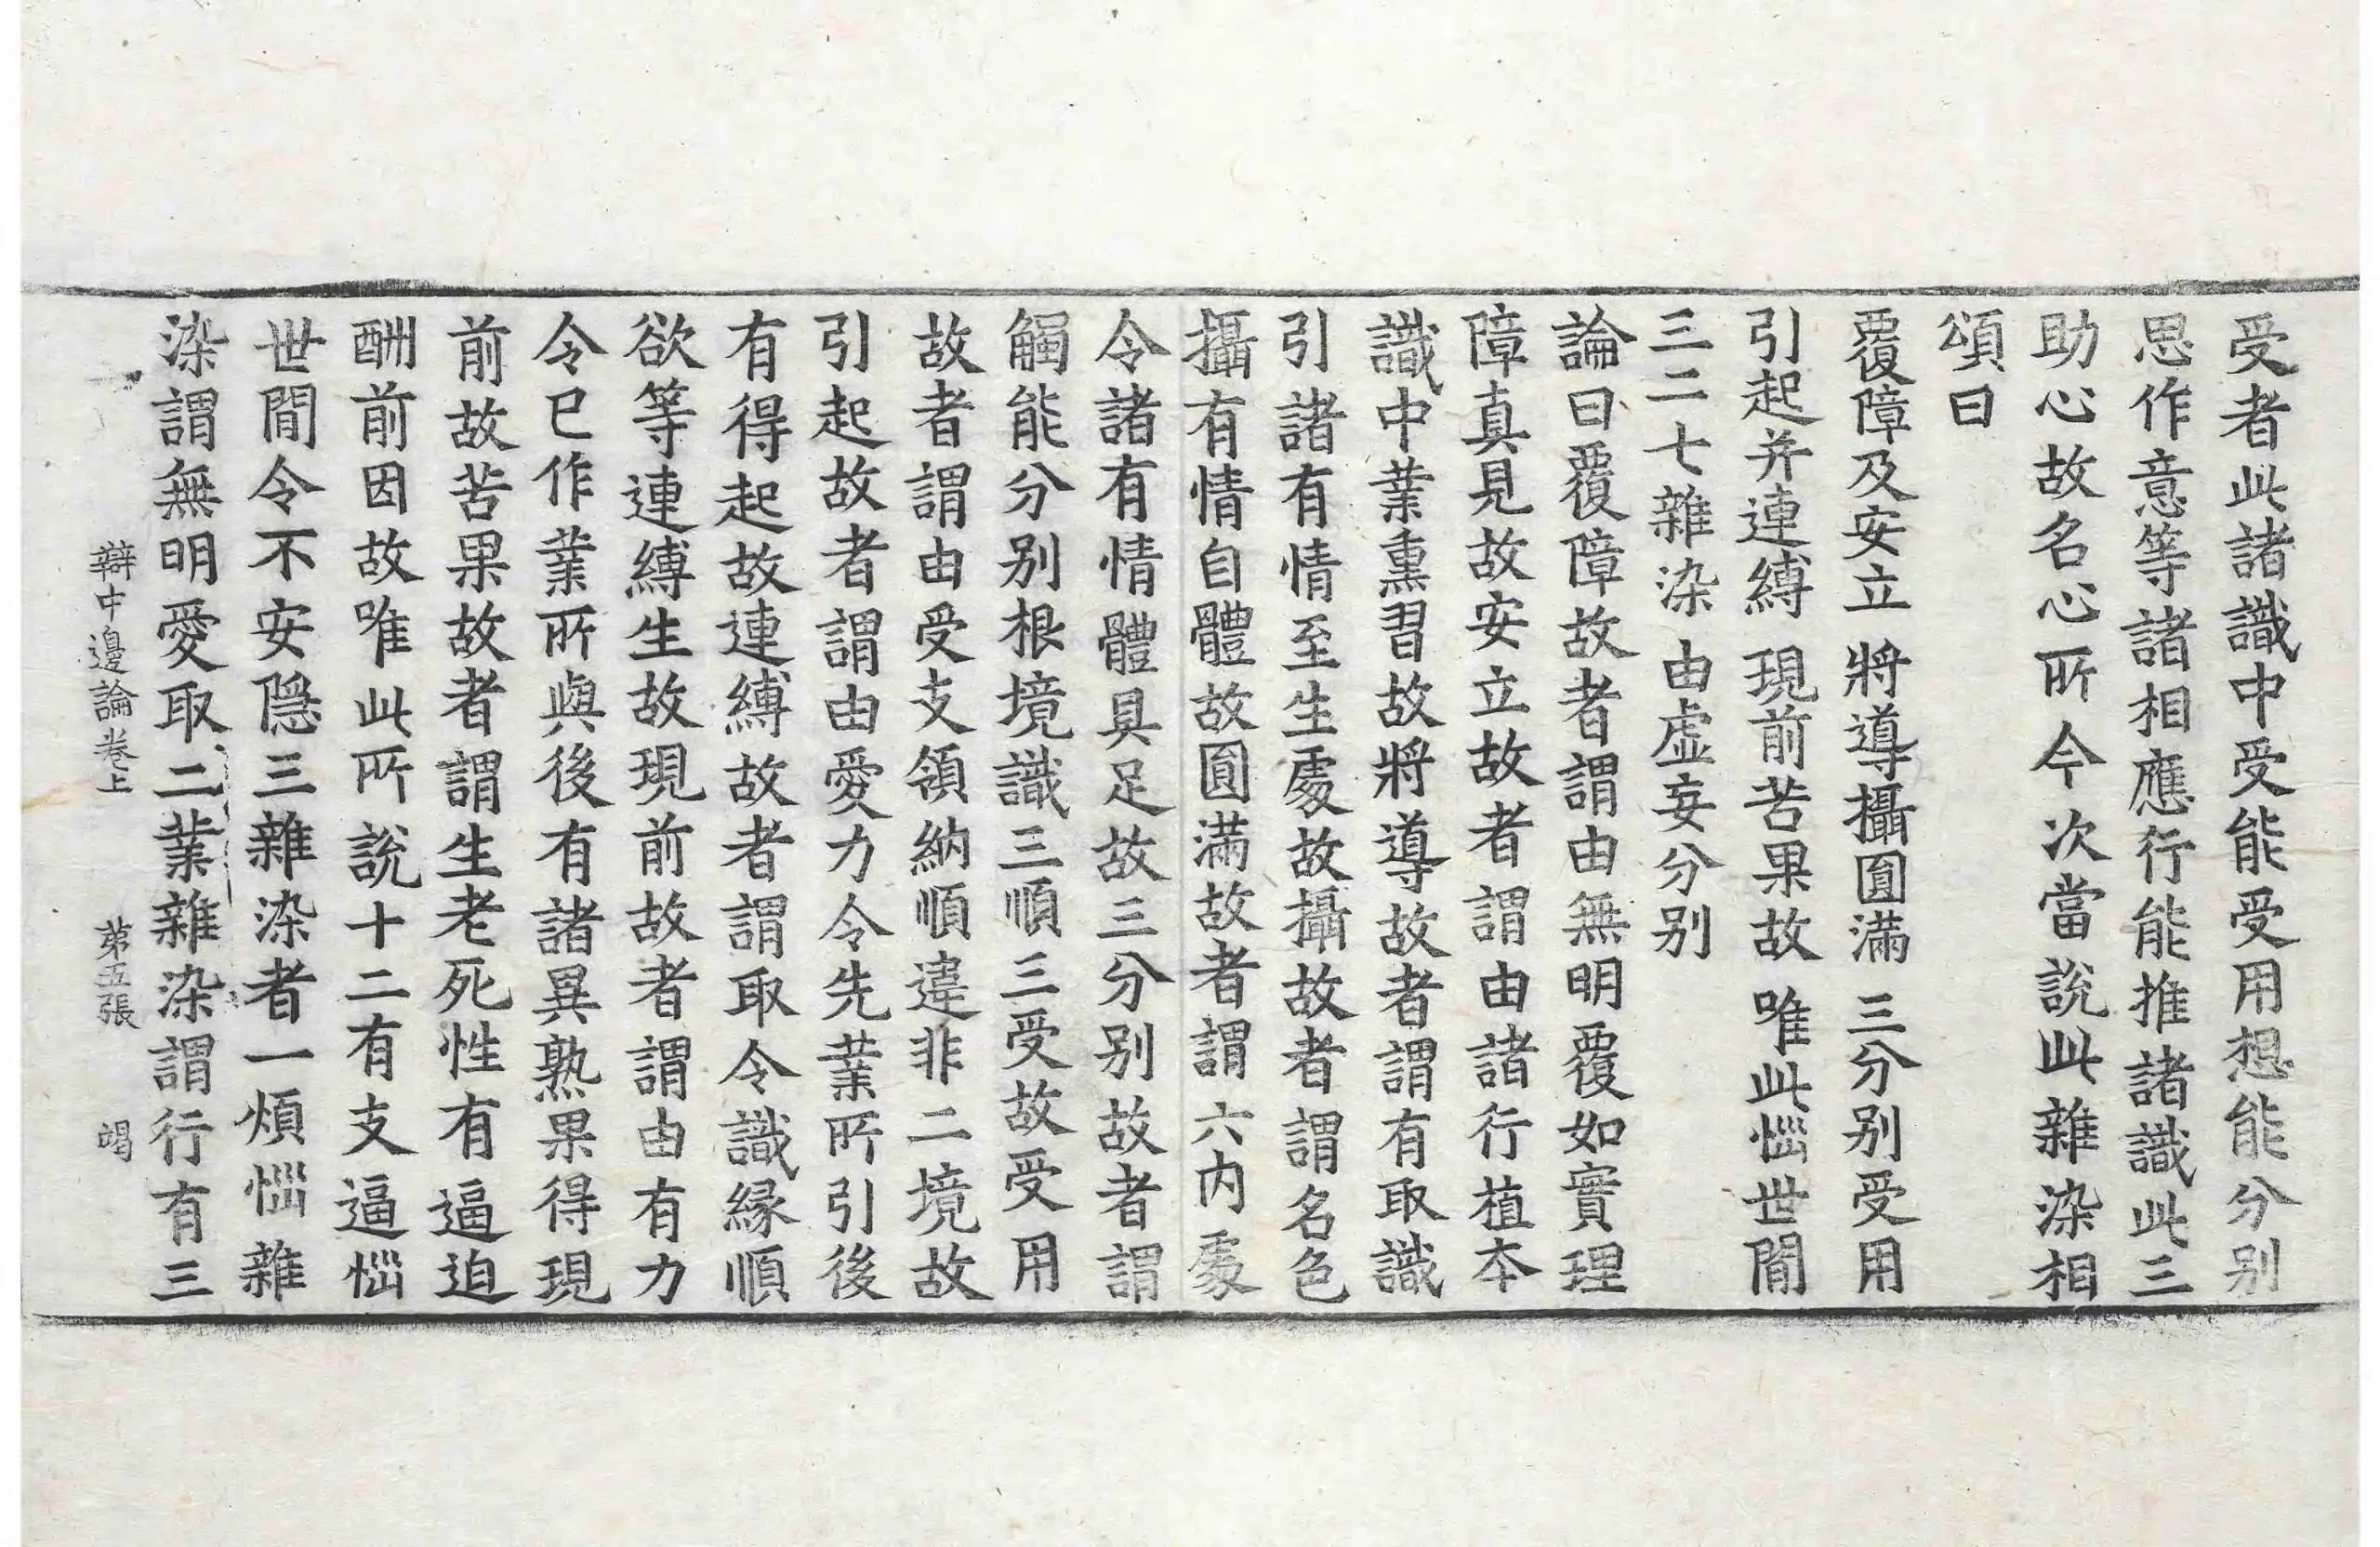 受者此諸識中受能受用想能分别
思作意等諸相應行能推諸識此三
助心故名心所今次當說此雜染相
頌曰
覆障及安立 將導攝圓滿 三分别受用
引起并連縛 現前苦果故 唯此惱世閒
三二七雜染 由虛妄分别
論曰覆障故者謂由無明覆如實理
障真見故安立故者謂由諸行植本
識中業熏習故將導故者謂有取識
引諸有情至生處故攝故者謂名色
攝有情自體故圓滿故者謂六内處
令諸有情體具足故三分别故者謂
觸能分别根境識三順三受故受用
故者謂由受支領納順違非二境故
引起故者謂由愛力令先業所引後
有得起故連縛故者謂取令識緣順
欲等連縛生故現前故者謂由有力
令已作業所與後有諸異熟果得現
前故苦果故者謂生老死性有逼迫
酬前因故唯此所說十二有支逼惱
世閒令不安隱三雜染者一煩惱雜
染謂無明愛取二業雜染謂行有三
辯中邊論卷上 第五張 竭